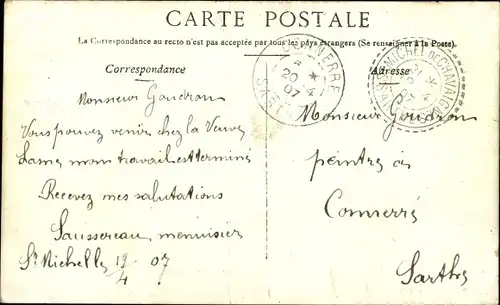 CARTE POSTALE
La Correspondance au recto n'est pas acceptée par tous les pays étrangers (Se renseigner à la Poste).
Correspondance
Adresse
CONNERRÉ
20 4
07
SARTHE
ST MICHEL DE CHAVAIGNES
Monsieur Goudron
Vous pouvez venir chez la Veuve
mon travail est terminé
Recevez mes salutations
Saussereau menuisier
St Michelle 19/4 07
Monsieur Goudron
peintre à
Connerré
Sarthe